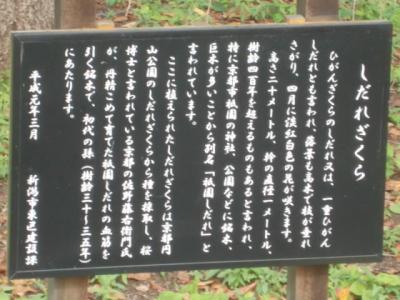 しだれざくら
ひがんざくらのしだれ又は、一重ひがん
しだれとも言われ、落葉も高木で枝が垂れ
さがり、四月に淡紅白色の花が咲きます。
高さ二十メートル、幹の直径一メートル、
樹齢四百年を超えるものもあると言われ、
特に京都市祇園の神社、公園などに銘木、
巨木が多いことから別名「祇園しだれ」と
言われています。
ここに植えられたしだれざくらは京都円
山公園のしだれざくらから種を採取し、桜
博士と言われている京都の佐野藤右衛門氏
が、丹精こめて育てた祇園しだれの血筋を
引く銘木で、初代の孫(樹齢三十~三五年)
にあたります。
平成元年三月
新潟市東区建設課